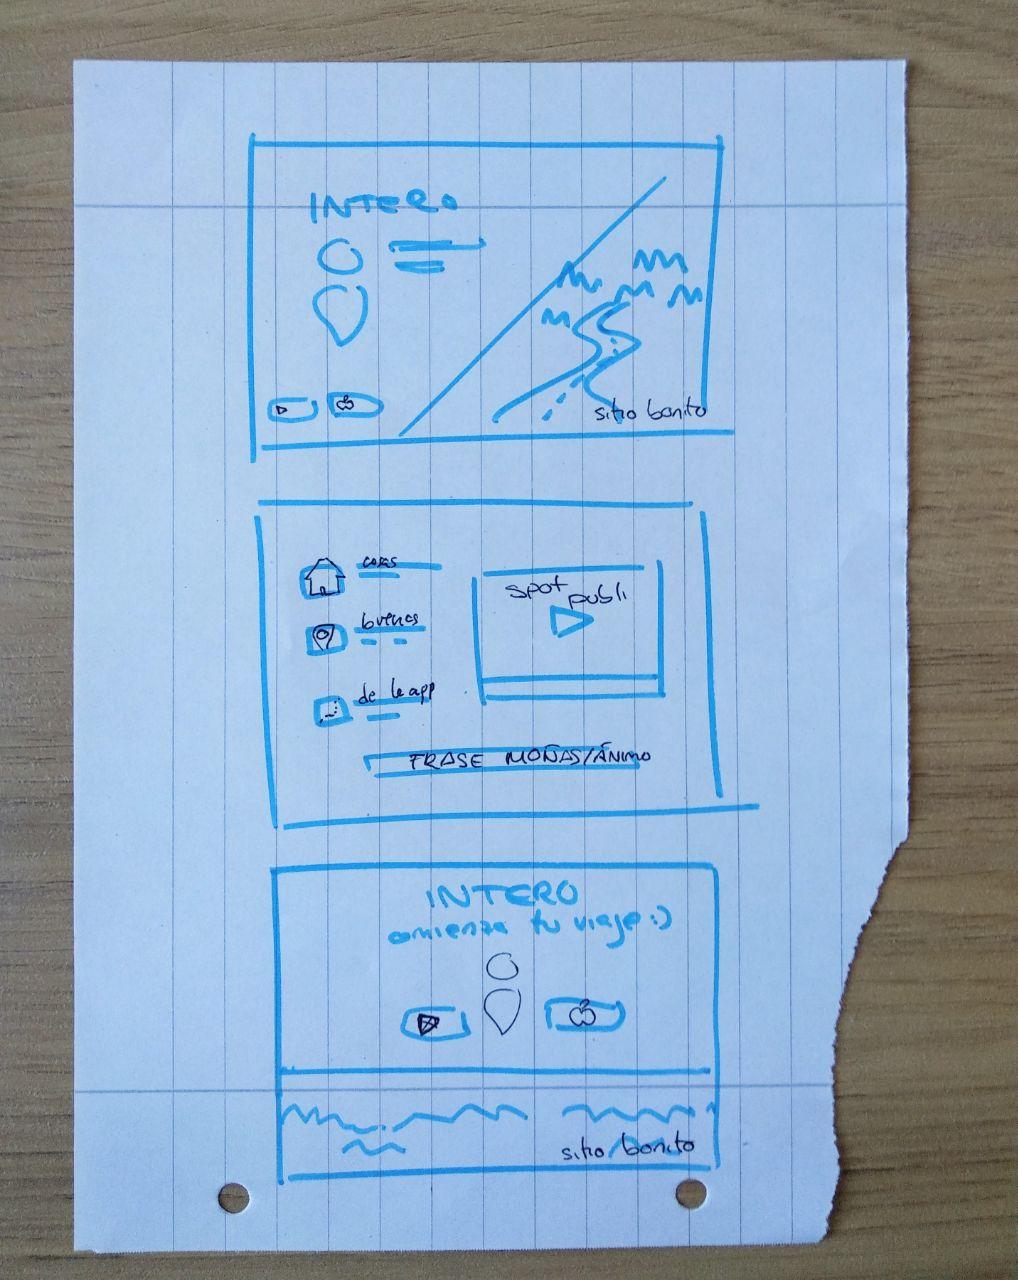 INTERO
sitio bonito
cosas
buenas
de la app
spot publi
FRASE MOÑAS/ÁNIMO
INTERO
comienza tu viaje :)
sitio bonito